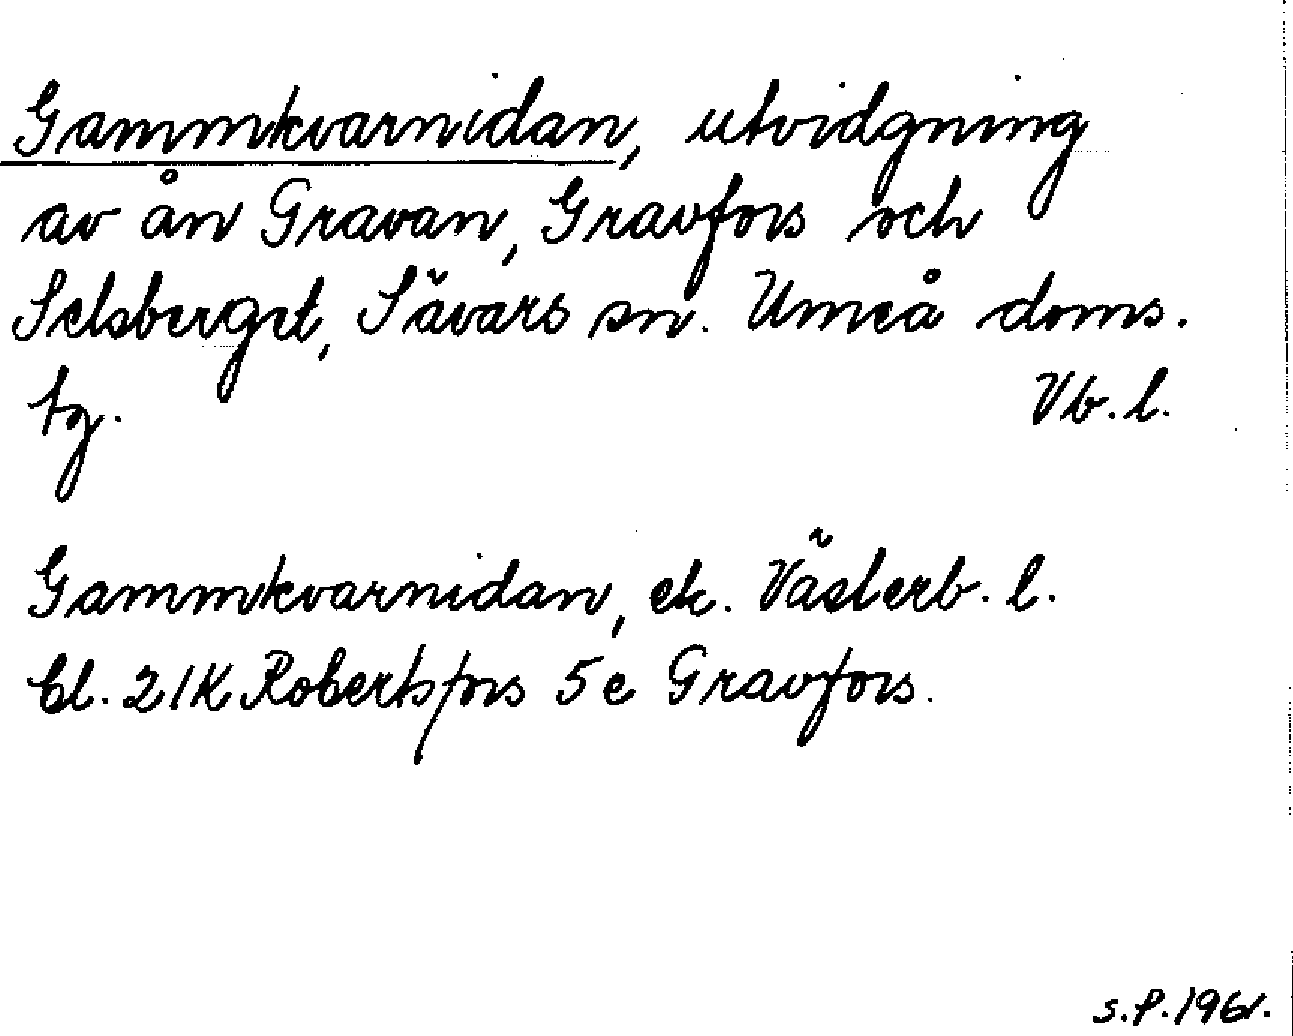 Gammkvarnidan, utvidgning
av ån Gravan, Gravfors och
Selsberget, Sävars sn. Umeå doms.
tg. Vb. l.
Gammkvarnidan, ek. Västerb. l.
bl. 21K Robertsfors 5e Gravfors.
S.P. 1961.